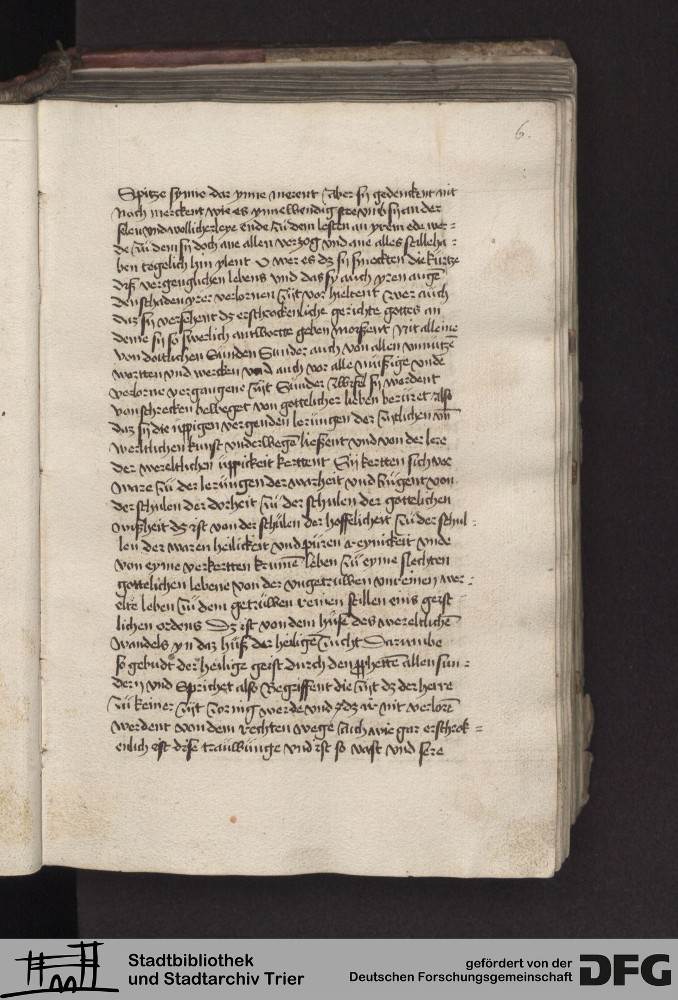 6.
Spitze synne dar ynne merent Aber sy gedenckent nit
noch merckent wie es ynnewendig stee vmb sy an der
selen vnd wollicherleye ende zü dem lesten an yrem ede wer-
de zü dem sy doch ane allen verzog vnd ane alles stilleha-
ben tegelich hin ylent O wer es dz sy smeckten die kurtze
diß vergenglichen lebens vnd das sy auch yren augē
den schaden yrer verlornen zijt vor hieltent wer auch
daz sy versehent dz erschrockenliche gerichte gottes an
deme sy so swerlich antwortte geben müßent Nit alleine
von doitlichen Sünden Sunder auch von allen vnnützē
wortten vnd wercken vnd auch vor alle müßige vnde
verlorne vergangene zijt Sünder zwifel sy werdent
von schrecken beweget von gottelicher lieben berüret also
daz sy die üppigen vergenden lerüngen der zijtlichen vn̄
werltlichen kunst vnderwegē ließent vnd von der lere
der wereltlichen üppickeit kertent Sy kertten sich vor
ware zü der lerüngen der warheit vnd zügent von
der schulen der dorheit zü der schulen der gottelichen
wißheit dz ist von der schülen der hoffelicheit zü der schul-
len der waren heilickeit vnd püren reynickeit vnde
von eyme verkertten krümē leben zü eyme slechten
gottelichen lebene von der vngetruwen vnreinen wer-
elte leben zü dem getrüwen reinen stillen eins geist
lichen ordens Dz ist von dem hüse des wereltlichē
wandels yn daz hüß der heiligē zucht Darumbe
so gebudt der heilige geist durch den p̱phettē allen sün-
dern vnd Sprichet also Begriffent die zijt dz der herre
zü keiner zijt zornig werde vnd dz ir nit verlorē
werdent von dem rechten wege Auch wie gar erschrock-
enlich ist dise trauwünge vnd ist so vast vnd sere
Stadtbibliothek
und Stadtarchiv Trier
gefördert von der
Deutschen Forschungsgemeinschaft
DFG